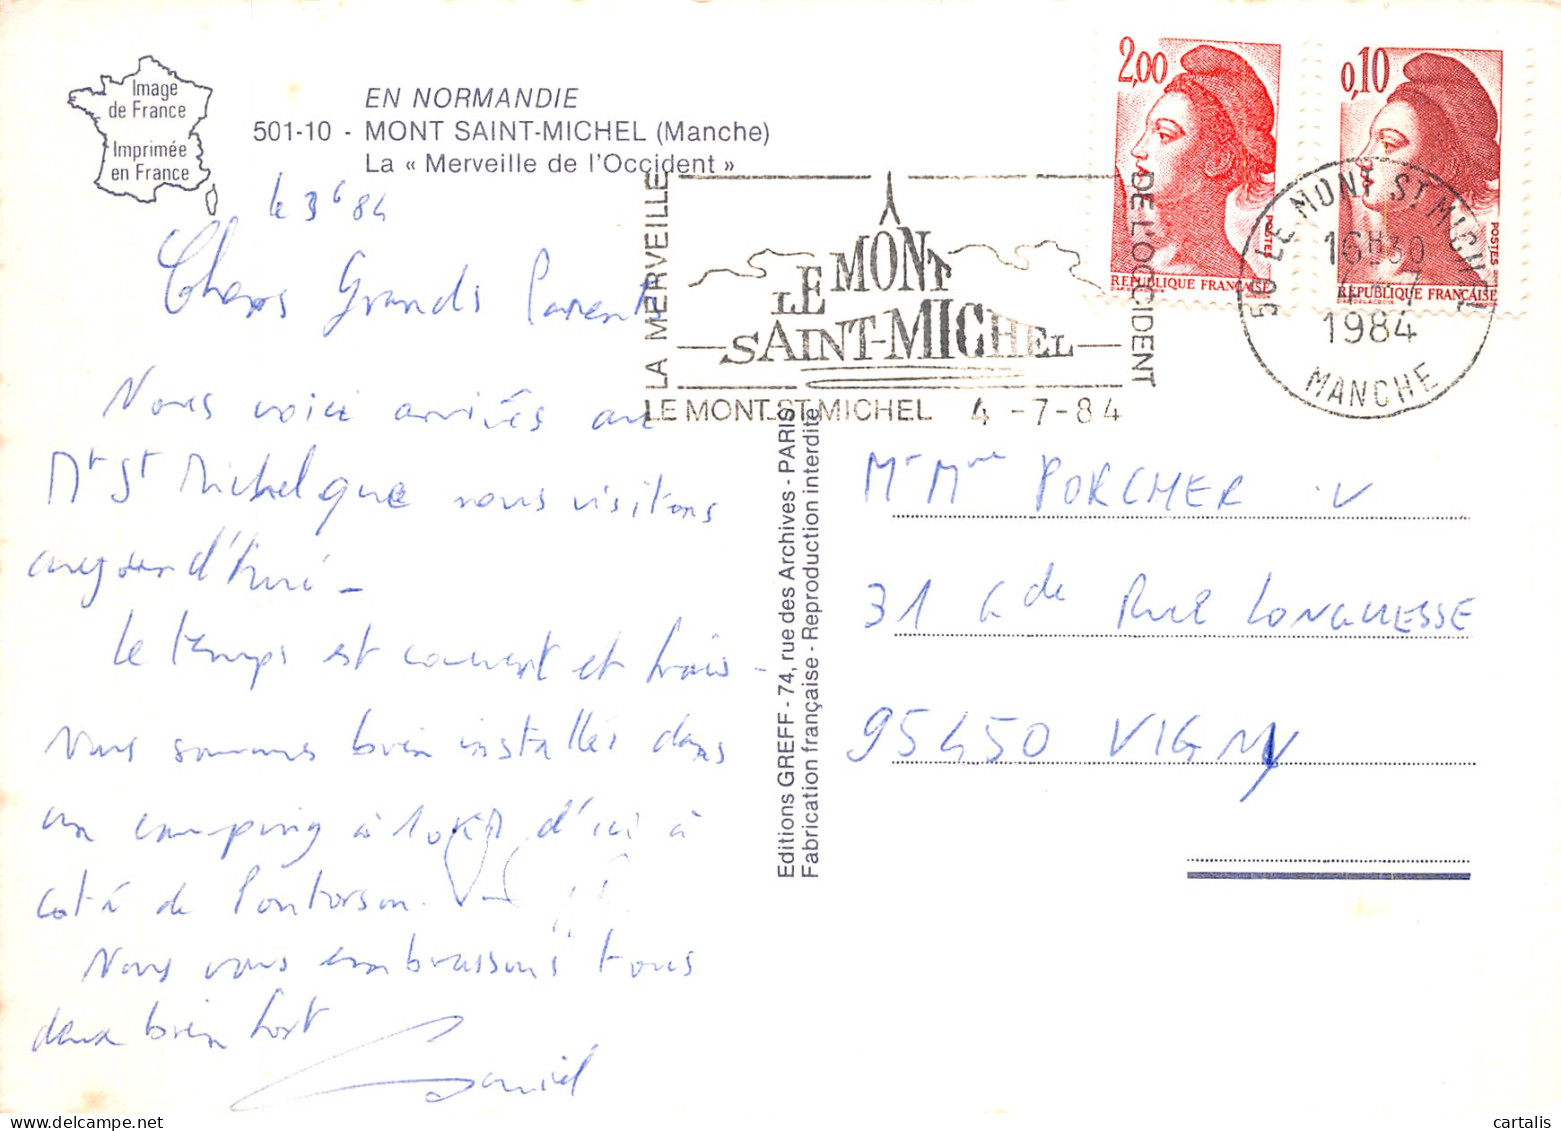 Image
de France
Imprimée
en France
EN NORMANDIE
501-10 - MONT SAINT-MICHEL (Manche)
La « Merveille de l'Occident »
2,00
POSTES
RÉPUBLIQUE FRANÇAISE
0,10
POSTES
RÉPUBLIQUE FRANÇAISE
LA MERVEILLE
LE MONT
SAINT-MICHEL
DE L'OCCIDENT
LE MONT ST MICHEL 4 -7-84
50 LE MONT ST MICHEL
16H30
4 -7
1984
MANCHE
le 3 6 84
Chers Grands Parents
Nous voici arrivés au
Mt St Michel que nous visitons
aujourd'hui -
Le temps est couvert et frais -
Nous sommes bien installés dans
un camping à 10 KM d'ici à
coté de Pontorson.
Nous vous embrassons tous
deux bien fort
Daniel
Editions GREFF - 74, rue des Archives - PARIS
Fabrication française - Reproduction interdite
Mr Mme PORCHER V
31 Gde RUE LONGUESSE
95450 VIGNY
cartalis